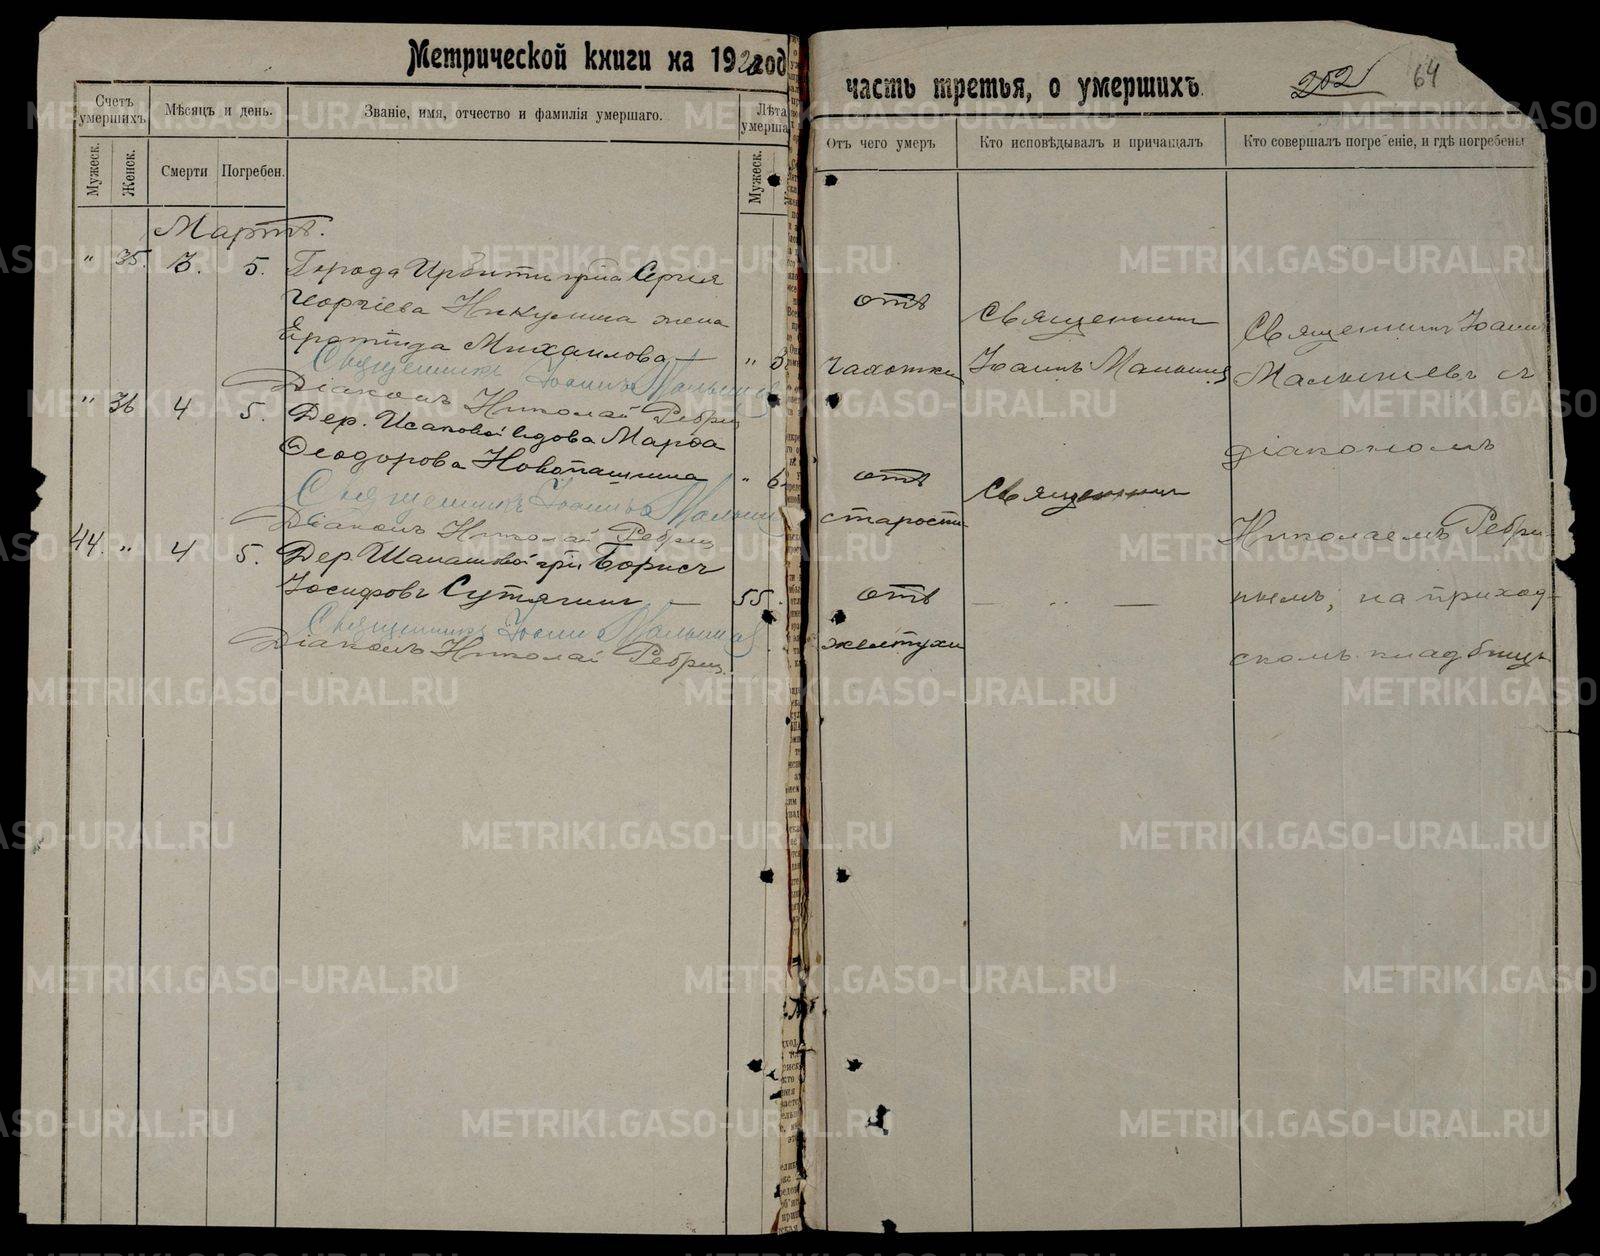 Метрической книги на 1920 год
часть третья, о умершихъ.
202
64
Счетъ умершихъ.
Мѣсяцъ и день.
Званіе, имя, отчество и фамилія умершаго.
Лѣта умерша
Мужеск.
Женск.
Смерти
Погребен.
Мужеск.
Отъ чего умеръ
Кто исповѣдывалъ и причащалъ
Кто совершалъ погребеніе, и гдѣ погребены
Мартъ.
" 35. 3. 5. Города Ирбити гр-на Сергія
Георгіева Никулина жена
Михаилова — " 5
Священникъ Іоаннъ Малышев
Діаконъ Николай Ребрин
" 36 4 5. Дер. Исаковой вдова Марѳа
Ѳеодорова Новопашина " 6
Священникъ Іоаннъ Малыш
Діаконъ Николай Ребрин
44. " 4 5. Дер. гр. Борисъ
Іосифовъ Сутягинъ — 55.
Священникъ Іоаннъ Малышев
Діаконъ Николай Ребрин.
отъ
чахотки
отъ
старости
отъ
желтухи
Священникъ
Іоаннъ Малышев
Священникъ
— " —
Священникъ Іоаннъ
Малышевъ съ
діакономъ
Николаемъ Ребри-
нымъ, на приход-
скомъ кладбищѣ
METRIKI.GASO-URAL.RU